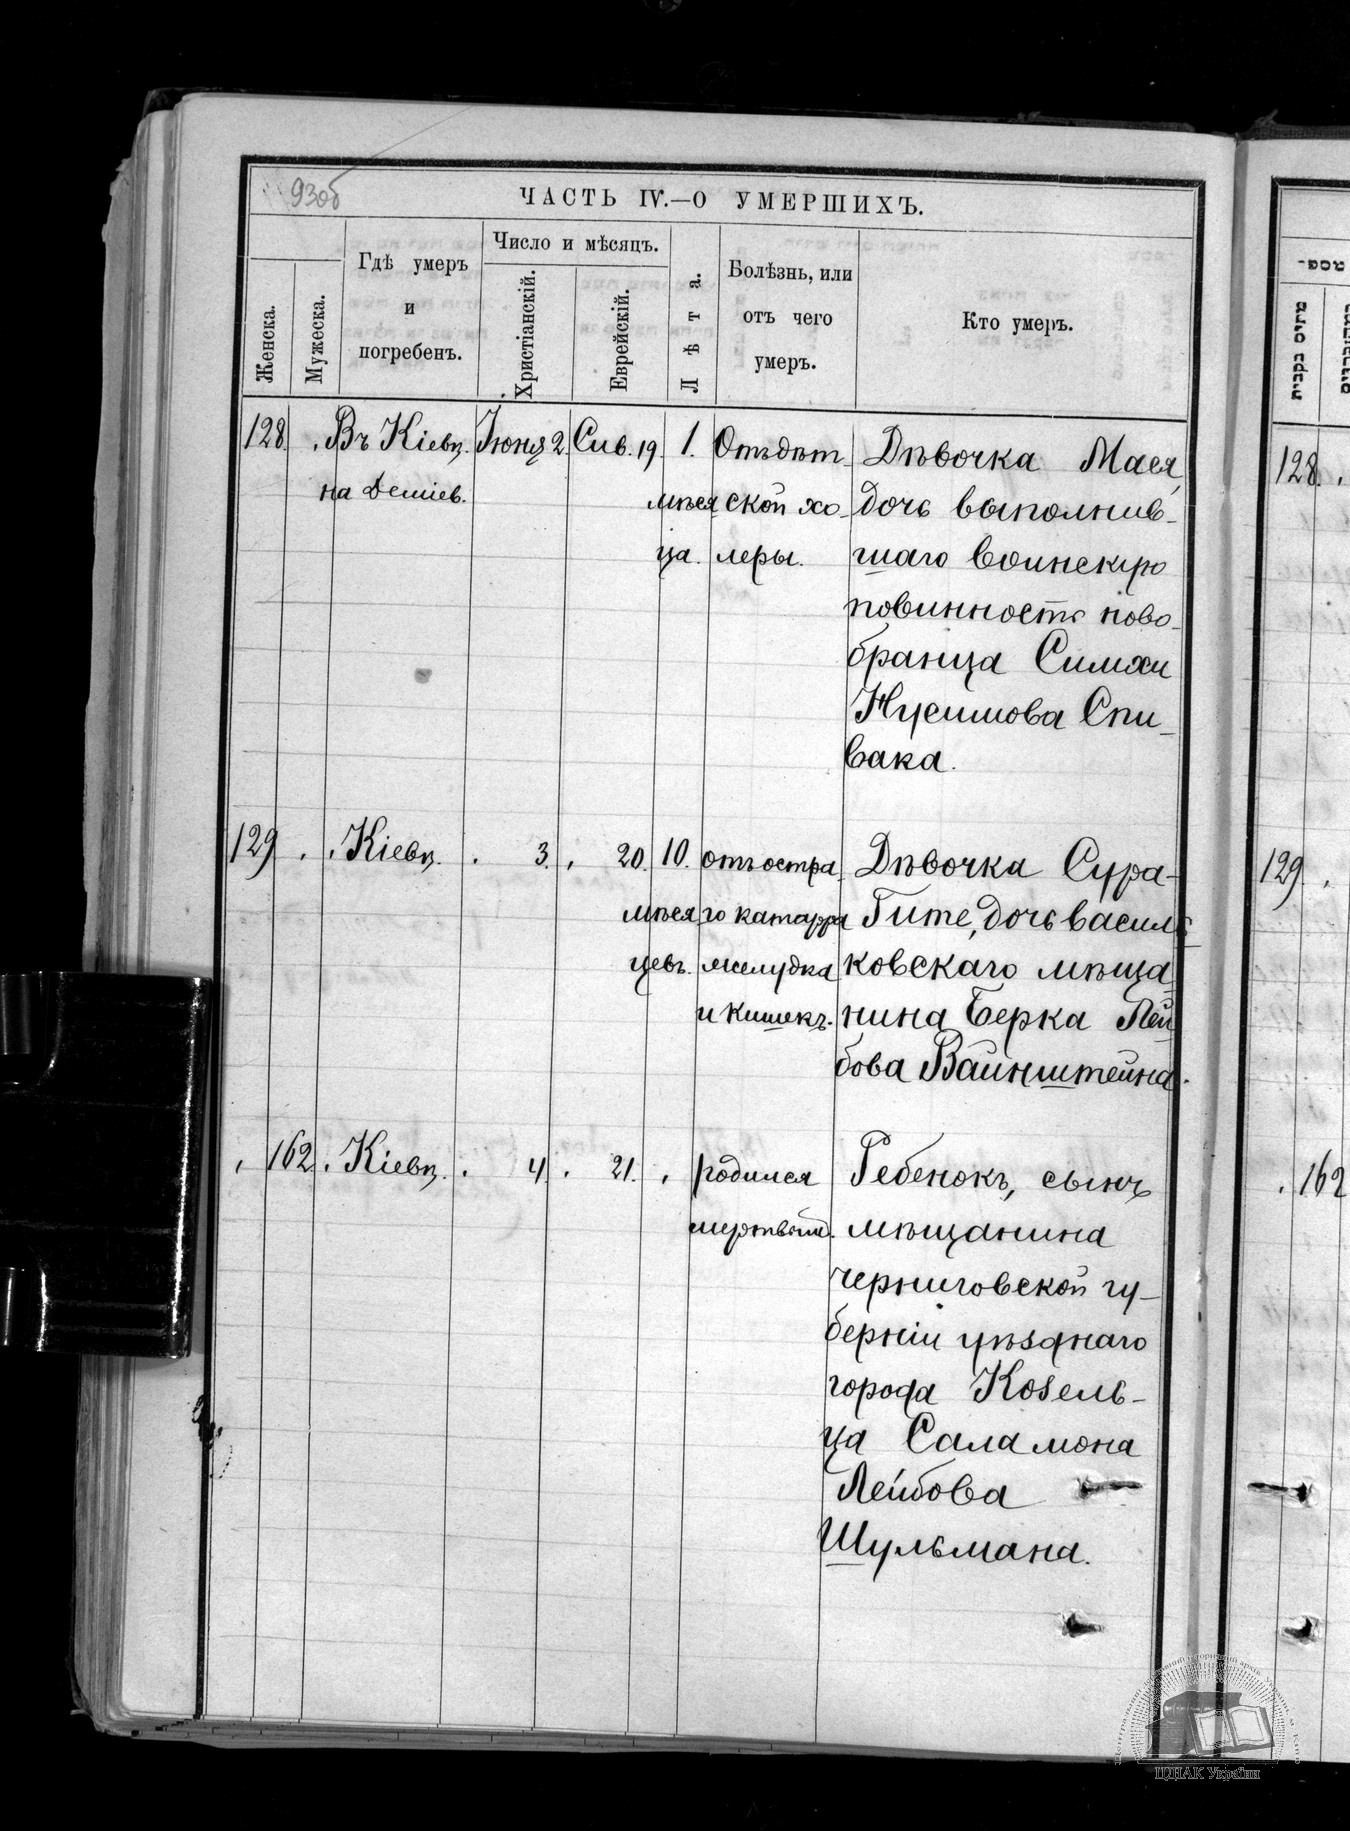 93об
ЧАСТЬ IV.—О УМЕРШИХЪ.
Женска.
Мужеска.
Гдѣ умеръ
и
погребенъ.
Число и мѣсяцъ.
Христіанскій.
Еврейскій.
Лѣта.
Болѣзнь, или
отъ чего
умеръ.
Кто умеръ.
128. Въ Кіевѣ. Іюня 2. Сив. 19. 1. Отъ дѣт- Дѣвочка Мася,
на Деміев. мѣся ской хо- дочь выполнив-
ца. леры. шаго воинскую
повинность ново-
бранца Симхи
Нусимова Спи-
вака.
129 Кіевѣ. 3. 20. 10. отъ остра- Дѣвочка Сура-
мѣся го катарра Гите, дочь василь
цевъ. желудка ковскаго мѣща-
и кишекъ. нина Берка Лей
бова Вайнштейна.
162. Кіевѣ. 4. 21. родился Ребенокъ, сынъ
мертвый. мѣщанина
черниговской гу-
берніи уѣзднаго
города Козель-
ца Саламона
Лейбова
Шульмана.
128.
129.
162
ЦДІАК України